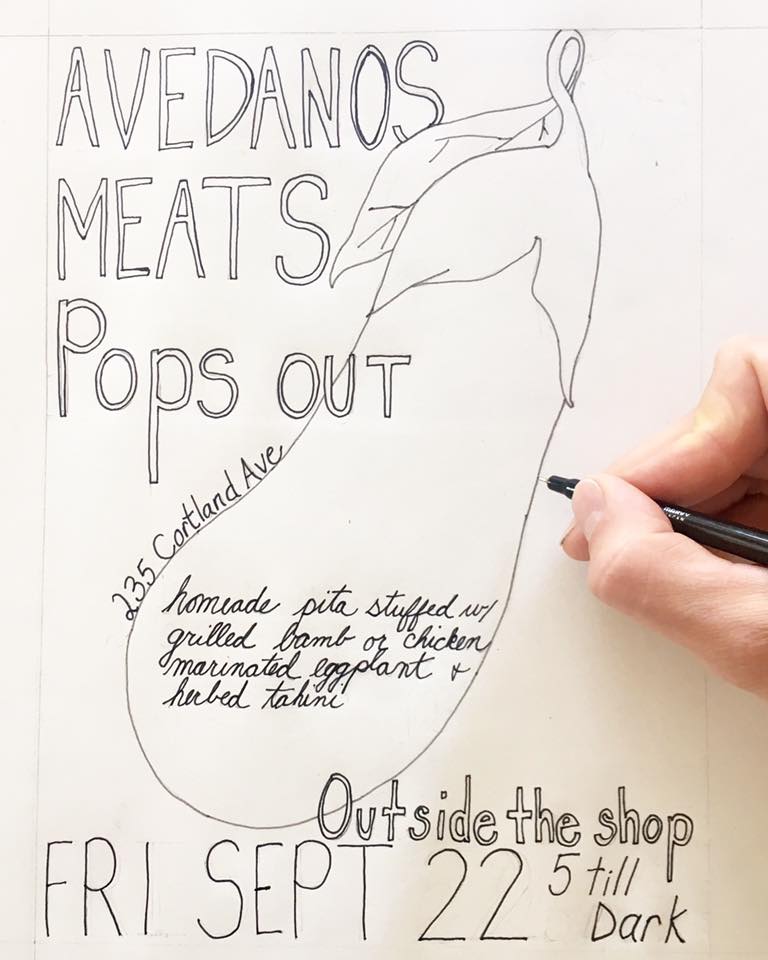 AVEDANOS
MEATS
Pops OUT
235 Cortland Ave
homeade pita stuffed w/
grilled bamb or chicken
marinated eggplant &
herbed tahini
Outside the shop
FRI SEPT 22 5 till
Dark